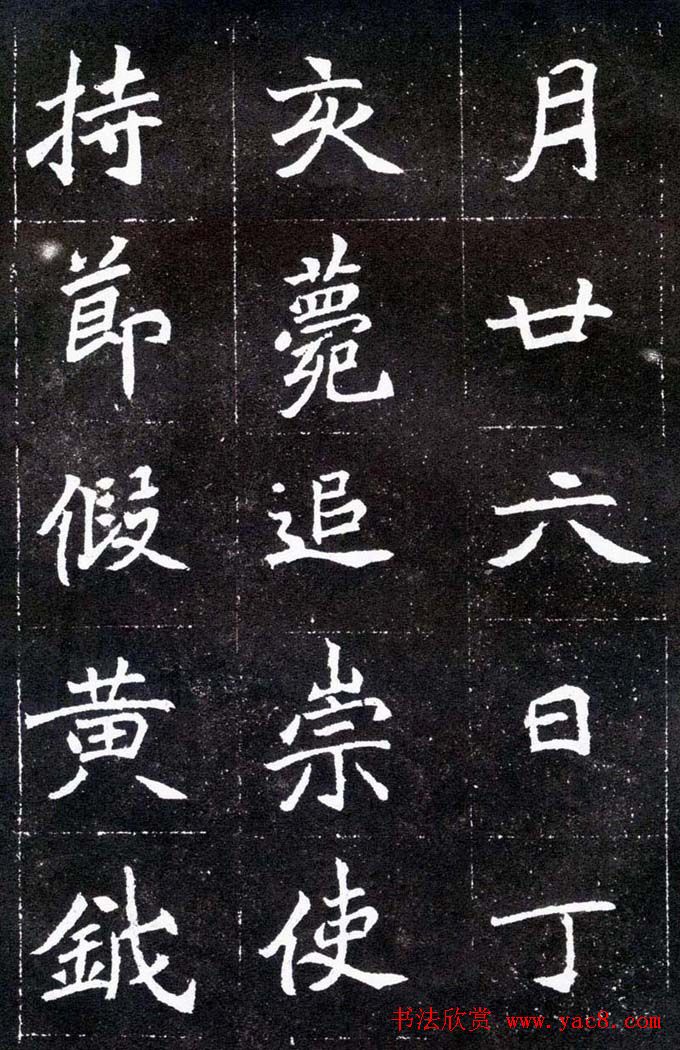 月廿六日丁
亥薨追崇使
持節假黄鉞
书法欣赏 www.yac8.com